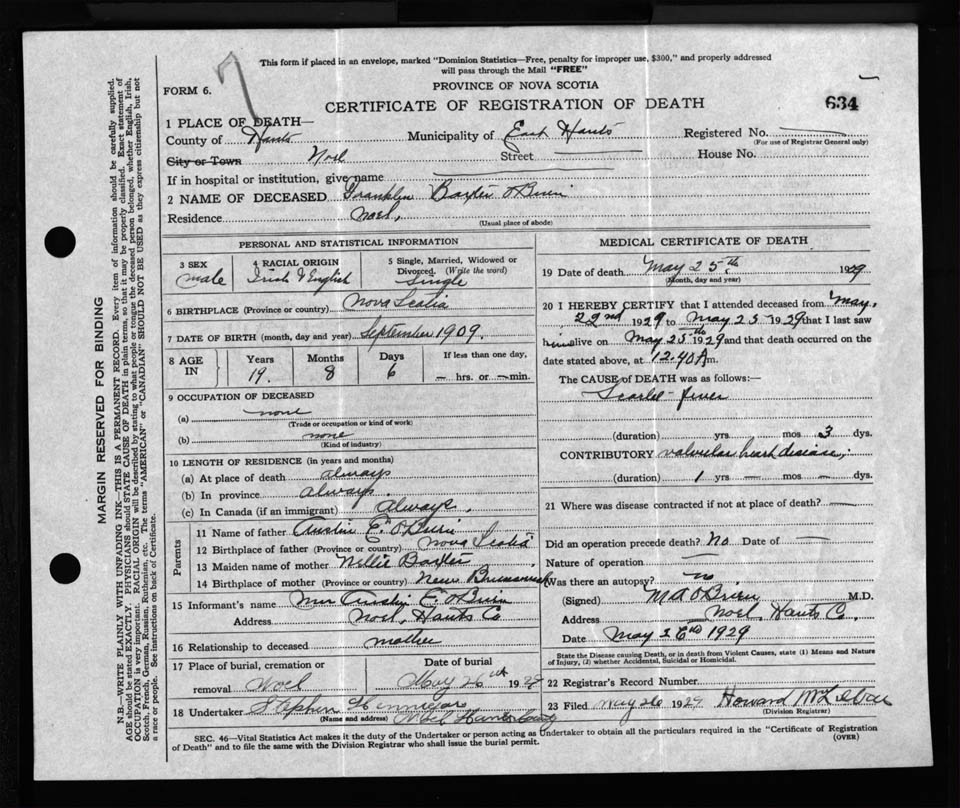 7
This form if placed in an envelope, marked "Dominion Statistics—Free, penalty for improper use, $300," and properly addressed
will pass through the Mail "FREE"
FORM 6.
PROVINCE OF NOVA SCOTIA
CERTIFICATE OF REGISTRATION OF DEATH
634
1 PLACE OF DEATH—
County of Hants Municipality of East Hants Registered No.
(For use of Registrar General only)
City or Town Noel Street House No.
If in hospital or institution, give name
2 NAME OF DECEASED Franklin Baxter O'Brien
Residence Noel,
(Usual place of abode)
PERSONAL AND STATISTICAL INFORMATION
3 SEX male
4 RACIAL ORIGIN Irish & English
5 Single, Married, Widowed or
Divorced. (Write the word)
Single
6 BIRTHPLACE (Province or country) Nova Scotia
7 DATE OF BIRTH (month, day and year) September 1909.
8 AGE IN
Years Months Days If less than one day,
19. 8 6 — hrs. or — min.
9 OCCUPATION OF DECEASED
(a) none
(Trade or occupation or kind of work)
(b) none
(Kind of industry)
10 LENGTH OF RESIDENCE (in years and months)
(a) At place of death always
(b) In province always.
(c) In Canada (if an immigrant) always.
Parents
11 Name of father Austin E. O'Brien
12 Birthplace of father (Province or country) Nova Scotia
13 Maiden name of mother Nellie Baxter
14 Birthplace of mother (Province or country) New Brunswick
15 Informant's name Mrs Austin E. O'Brien
Address Noel, Hants Co
16 Relationship to deceased mother
17 Place of burial, cremation or
removal Noel
Date of burial
May 26th 1929
18 Undertaker Stephen
(Name and address) Noel Hants County
MEDICAL CERTIFICATE OF DEATH
19 Date of death May 25th 1929
(Month, day and year)
20 I HEREBY CERTIFY that I attended deceased from May,
22nd 1929 to May 25 1929 that I last saw
him alive on May 25th 1929 and that death occurred on the
date stated above, at 12.40 A m.
The CAUSE of DEATH was as follows:—
Scarlet fever
(duration) yrs mos 3 dys.
CONTRIBUTORY valvular heart disease,
(duration) 1 yrs — mos — dys.
21 Where was disease contracted if not at place of death? —
Did an operation precede death? No Date of —
Nature of operation —
Was there an autopsy? no
(Signed) M A O'Brien M.D.
Address Noel, Hants Co.
Date May 26th 1929
State the Disease causing Death, or in death from Violent Causes, state (1) Means and Nature
of Injury, (2) whether Accidental, Suicidal or Homicidal.
22 Registrar's Record Number
23 Filed May 26 1929 Howard
(Division Registrar)
SEC. 46—Vital Statistics Act makes it the duty of the Undertaker or person acting as Undertaker to obtain all the particulars required in the "Certificate of Registration
of Death" and to file the same with the Division Registrar who shall issue the burial permit.
(OVER)
MARGIN RESERVED FOR BINDING
N.B.—WRITE PLAINLY WITH UNFADING INK—THIS IS A PERMANENT RECORD. Every item of information should be carefully supplied.
AGE should be stated EXACTLY. PHYSICIANS should STATE CAUSE OF DEATH in plain terms, so that it may be properly classified. Exact statement of
OCCUPATION is very important. RACIAL ORIGIN will be described by stating to what people or tongue the deceased person belonged, whether English, Irish,
Scotch, French, German, Russian, Ruthenian, etc. The terms "AMERICAN" or "CANADIAN" SHOULD NOT BE USED as they express citizenship but not
a race or people. See instructions on back of Certificate.